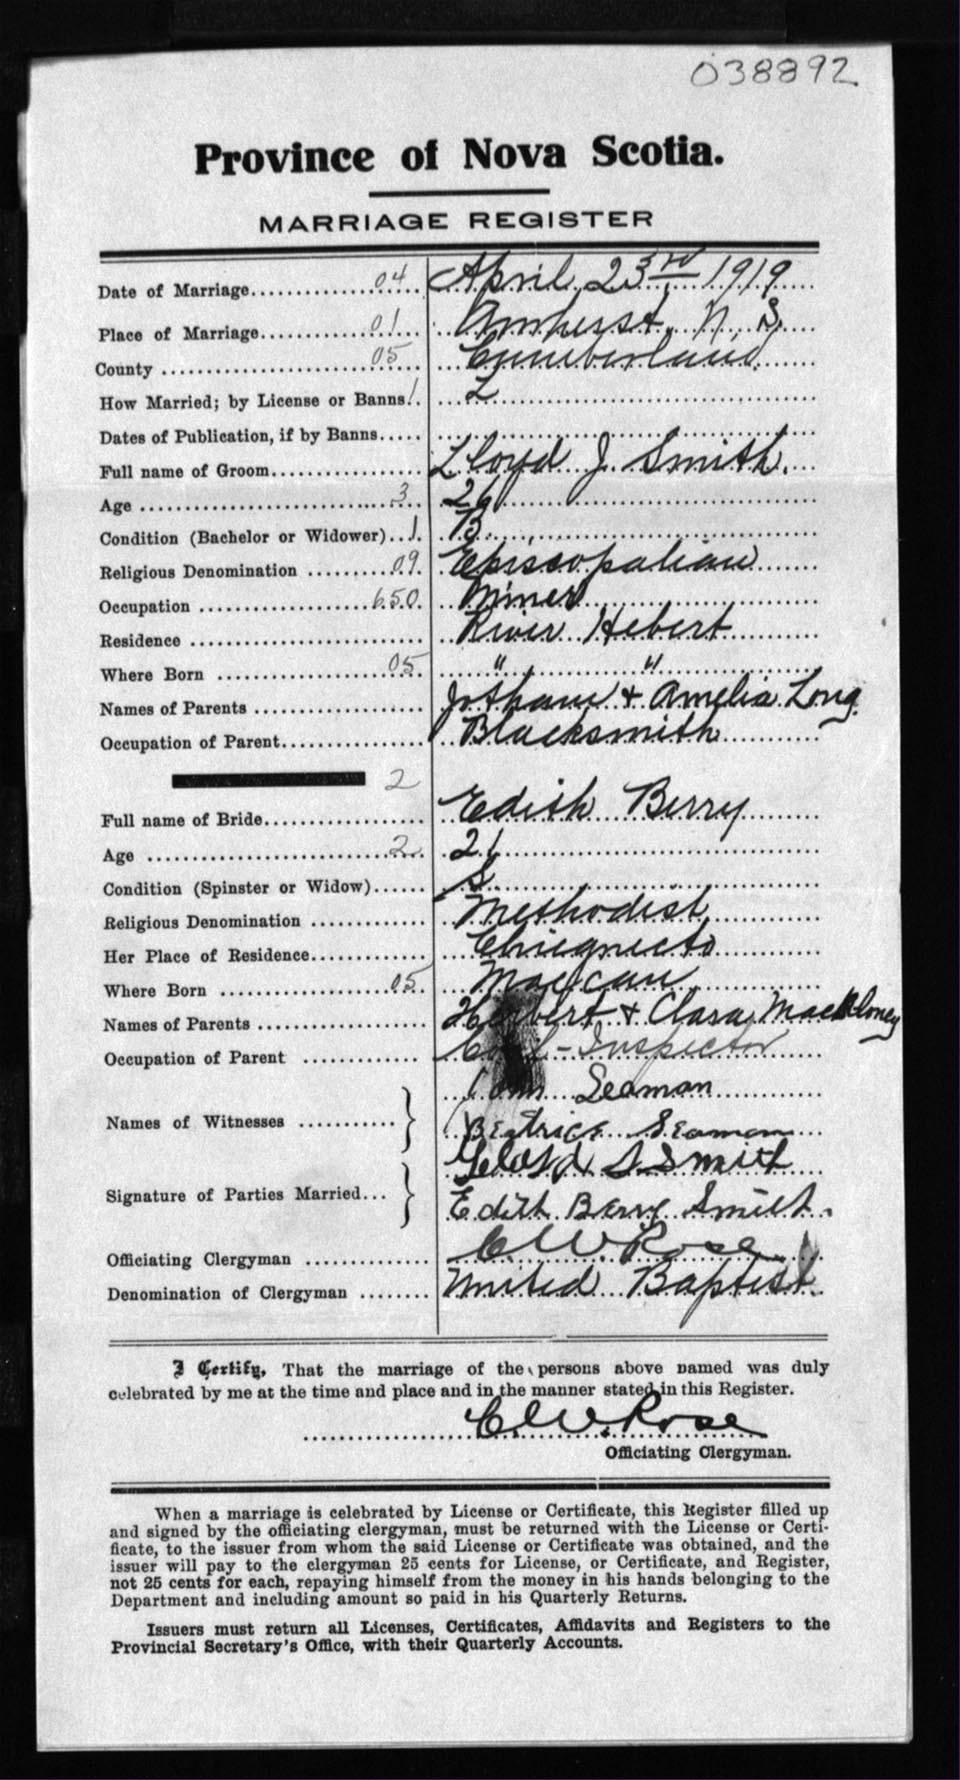 038892
Province of Nova Scotia.
MARRIAGE REGISTER
Date of Marriage 04 April 23rd 1919
Place of Marriage 01 Amherst, N. S.
County 05 Cumberland
How Married; by License or Banns 1. L
Dates of Publication, if by Banns
Full name of Groom Lloyd J Smith.
Age 3 26
Condition (Bachelor or Widower) 1. B
Religious Denomination 09 Episcopalian
Occupation 650 Miner
Residence River Hebert
Where Born 05 " "
Names of Parents Jotham + Amelia Long
Occupation of Parent Blacksmith
2
Full name of Bride Edith Berry
Age 2 21
Condition (Spinster or Widow) S
Religious Denomination Methodist
Her Place of Residence Chicgnecto
Where Born 05 Maccan
Names of Parents Herbert + Clara
Occupation of Parent Coal-Inspector
Seaman
Names of Witnesses
Beatrice Seaman
Smith
Signature of Parties Married
Edith Berry Smith.
Officiating Clergyman C. W. Rose
Denomination of Clergyman United Baptist.
I Certify, That the marriage of the persons above named was duly
celebrated by me at the time and place and in the manner stated in this Register.
C. W. Rose
Officiating Clergyman.
When a marriage is celebrated by License or Certificate, this Register filled up
and signed by the officiating clergyman, must be returned with the License or Certi-
ficate, to the issuer from whom the said License or Certificate was obtained, and the
issuer will pay to the clergyman 25 cents for License, or Certificate, and Register,
not 25 cents for each, repaying himself from the money in his hands belonging to the
Department and including amount so paid in his Quarterly Returns.
Issuers must return all Licenses, Certificates, Affidavits and Registers to the
Provincial Secretary's Office, with their Quarterly Accounts.